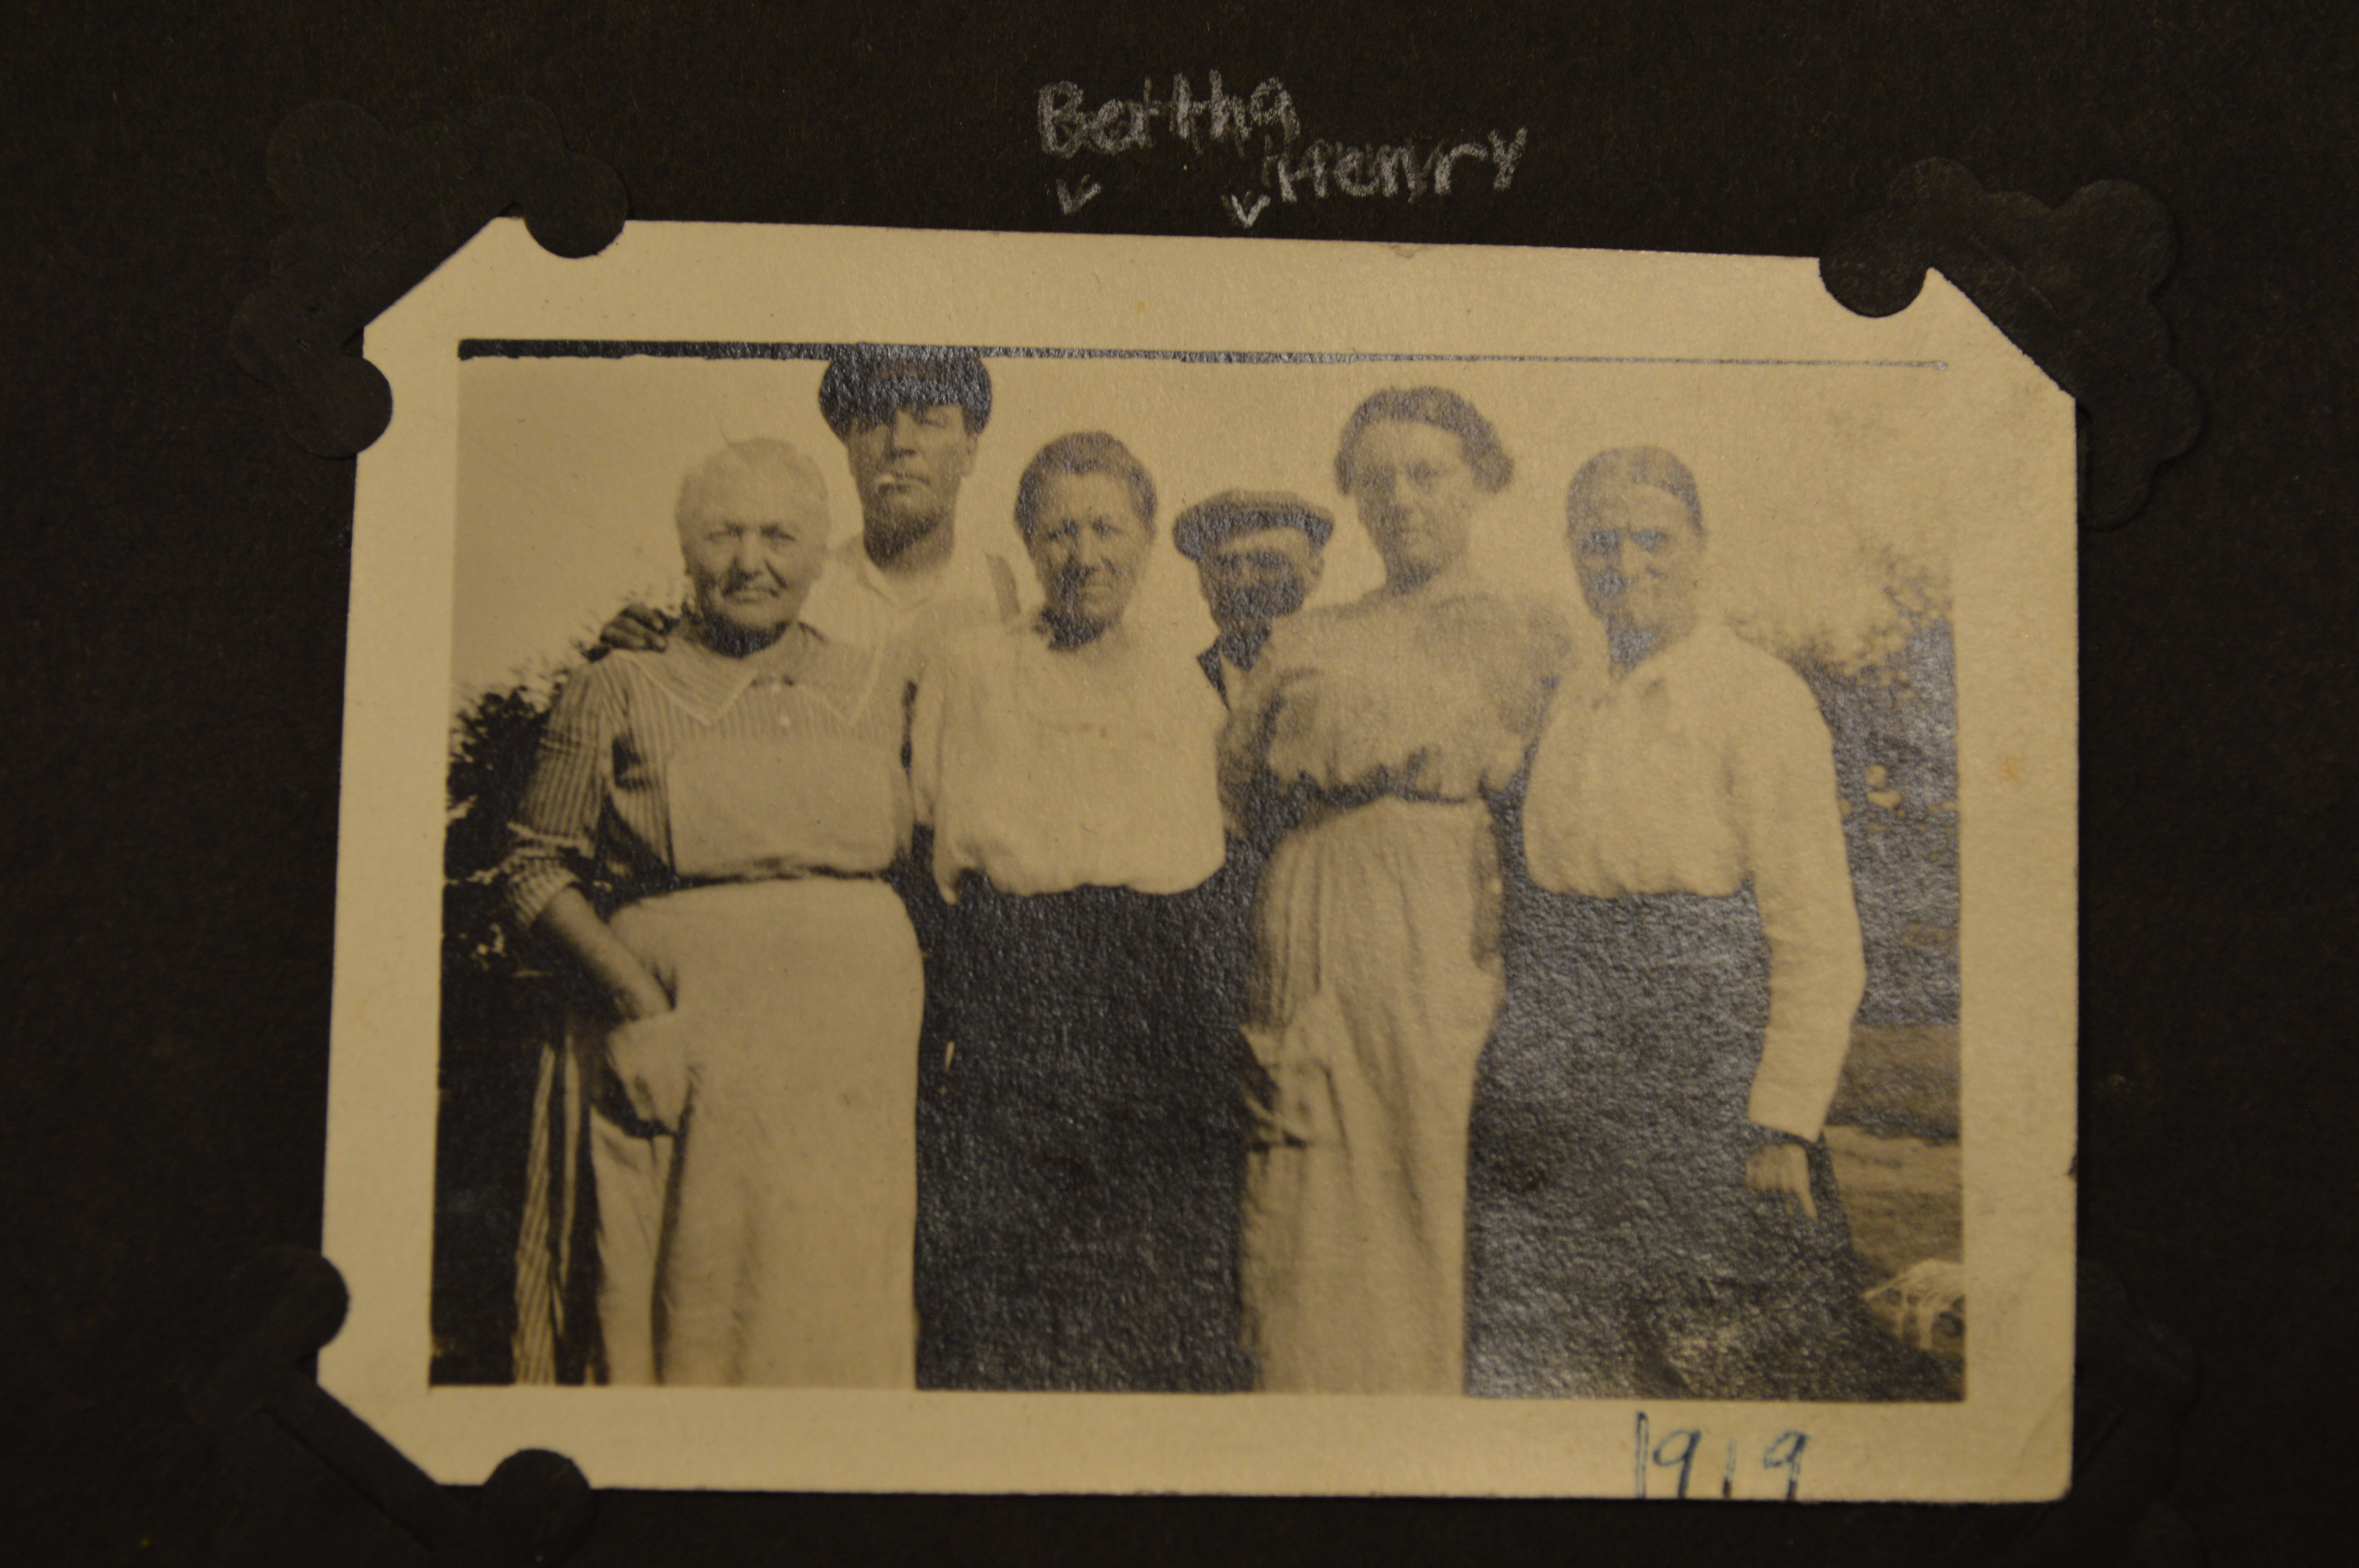 Bertha
Henry
1919